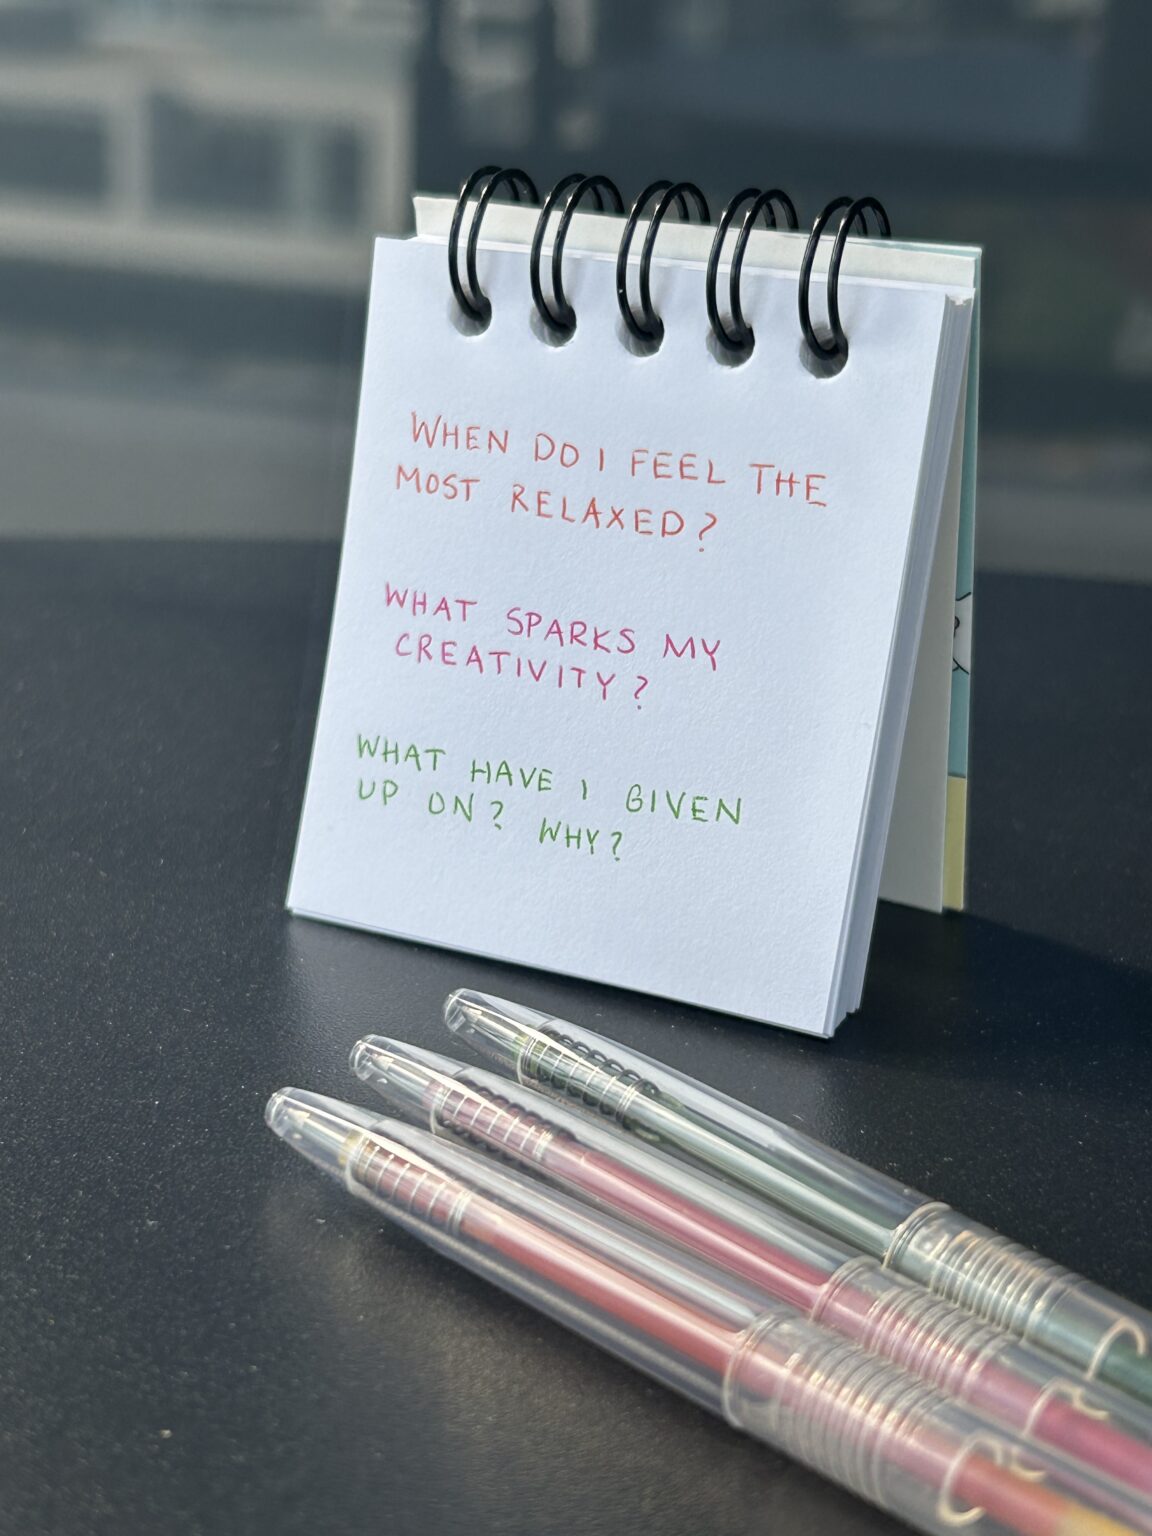 WHEN DO I FEEL THE
MOST RELAXED?
WHAT SPARKS MY
CREATIVITY?
WHAT HAVE I GIVEN
UP ON? WHY?